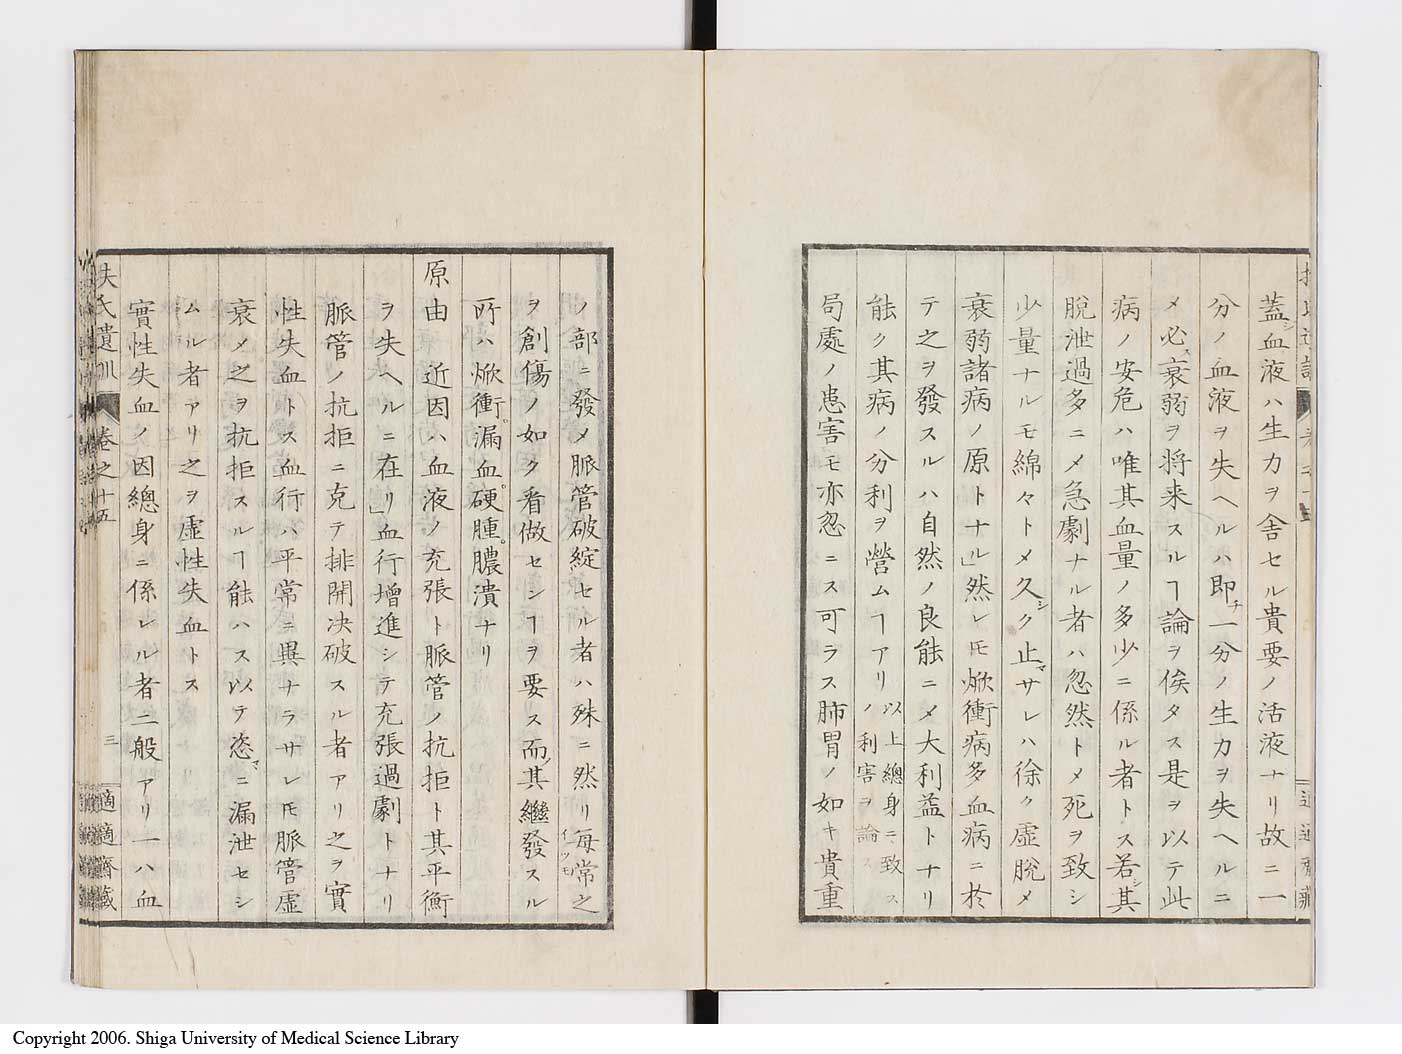 蓋シ血液ハ生力ヲ舎セル貴要ノ活液ナリ故ニ一
分ノ血液ヲ失ヘルハ即チ一分ノ生力ヲ失ヘルニ
〆必ス衰弱ヲ将来スルヿ論ヲ俟タス是ヲ以テ此
病ノ安危ハ唯其血量ノ多少ニ係ル者トス若シ其
脱泄過多ニ〆急劇ナル者ハ忽然ト〆死ヲ致シ
少量ナルモ綿々ト〆久シク止マサレハ徐ク虚脱〆
衰弱諸病ノ原トナル」然レ𪜈焮衝病多血病ニ於
テ之ヲ發スルハ自然ノ良能ニ〆大利益トナリ
能ク其病ノ分利ヲ營ムヿアリ以上總身ニ致ス
ノ利害ヲ論ス
局處ノ患害モ亦忽ニス可ラス肺胃ノ如キ貴重
ノ部ニ發〆脈管破綻セル者ハ殊ニ然リ毎常之イツモ
ヲ創傷ノ如ク看做センヿヲ要ス而ノ其繼發スル
所ハ焮衝。漏血。硬腫。膿潰ナリ
原由 近因ハ血液ノ充張ト脈管ノ抗拒ト其平衡
ヲ失ヘルニ在リ」血行增進シテ充張過劇トナリ
脈管ノ抗拒ニ克テ排開决破スル者アリ之ヲ實
性失血トス血行ハ平常ニ異ナラサレ𪜈脈管虚
衰〆之ヲ抗拒スルヿ能ハス以テ恣マニ漏泄セシ
ムル者アリ之ヲ虚性失血トス
實性失血ノ因總身ニ係レル者二般アリ一ハ血
扶氏遺訓 卷之十五 三 適適齋藏
Copyright 2006. Shiga University of Medical Science Library